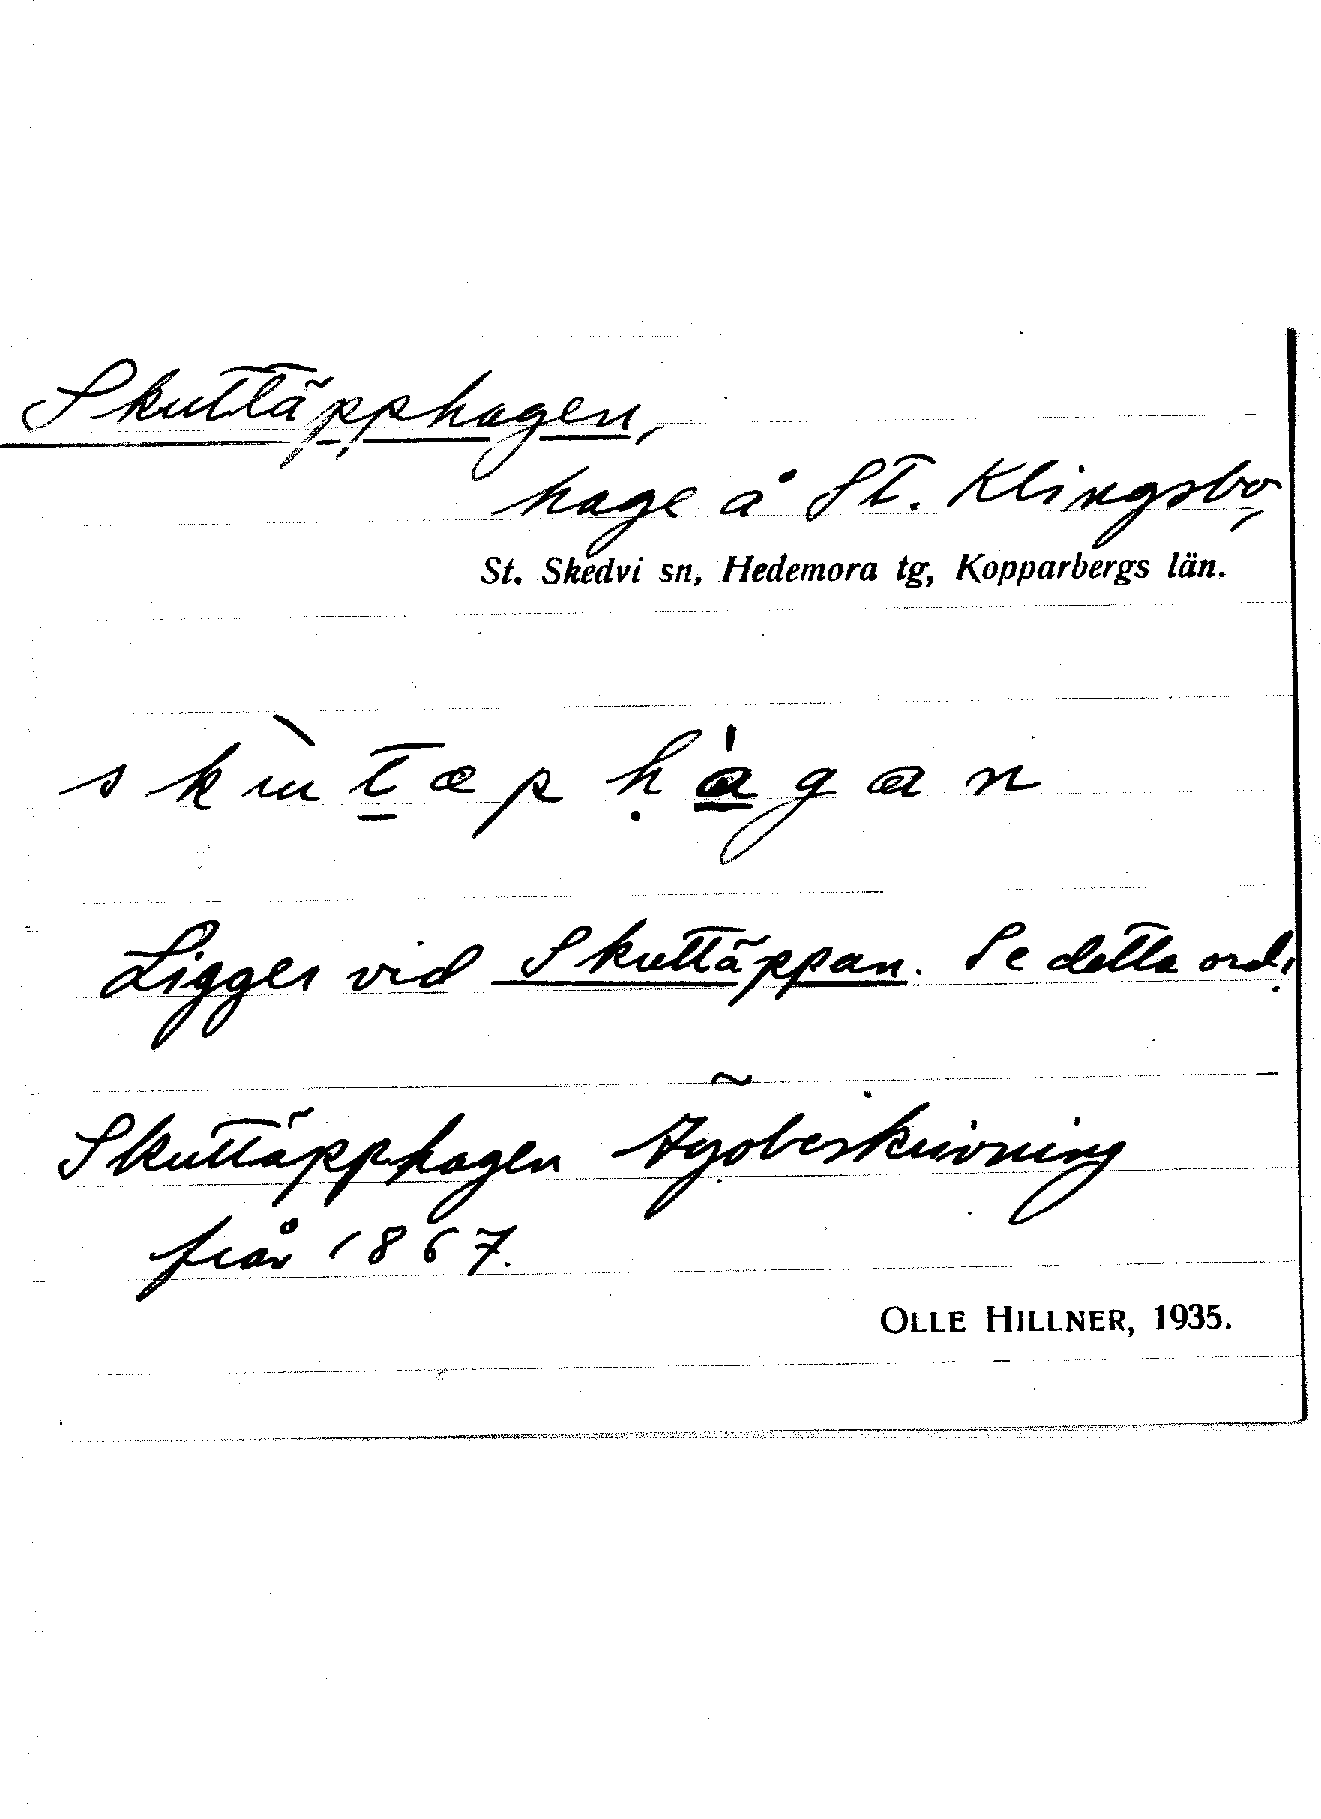 Skuttäpphagen,
hage å St. Klingsbo,
St. Skedvi sn, Hedemora tg, Kopparbergs län.
skùtæphàgan
Ligger vid Skuttäppan. Se detta ord.
Skuttäpphagen Ägobeskrivning
från 1867.
OLLE HILLNER, 1935.